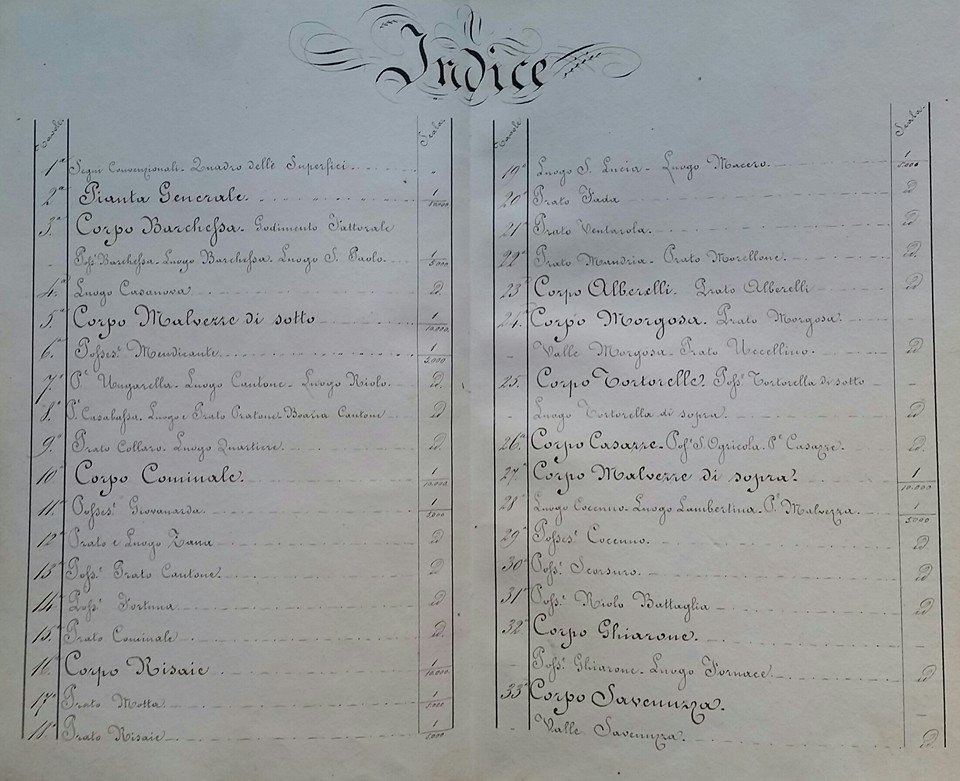 Indice
Tavole Scala
1ª Segni Convenzionali - Quadro delle Superfici „
2ª Pianta Generale. 1/10.000
3ª Corpo Barchessa. Godimento Fattorale
- Possⁱ Barchessa. Luogo Barchessa. Luogo S. Paolo. 1/5.000
4ª Luogo Casanova id.
5ª Corpo Malvezze di sotto 1/10.000
6ª Possesⁱ Mendicante 1/5.000
7ª Pⁱ Ungarella - Luogo Cantone - Luogo Riolo. id.
8ª Pⁱ Casabassa. Luogo e Prato Pratone - Boaria Cantone id
9ª Prato Collaro. Luogo Quartiere. id.
10ª Corpo Cominale. 1/10.000
11ª Possesⁱ Giovanarda. 1/5.000
12ª Prato e Luogo Zana id
13ª Possⁱ Prato Cantone. id
14ª Possⁱ Fortuna id
15ª Prato Cominale id.
16ª Corpo Risaie 1/10.000
17ª Prato Motta 1/5.000
18ª Prato Risaie 1/5.000
Tavole Scala
19ª Luogo S. Lucia - Luogo Macero. 1/5.000
20ª Prato Fada id
21ª Prato Ventarola. id
22ª Prato Mandria - Prato Morellone. id
23ª Corpo Alberelli. Prato Alberelli id
24. Corpo Morgosa. Prato Morgosa. -
- Valle Morgosa - Prato Uccellino. id
25. Corpo Tortorelle. Possⁱ Tortorella di sotto -
- Luogo Tortorella di sopra. id
26ª Corpo Casazze. Possⁱ S. Ogricola. Pⁱ Casazze. id
27ª Corpo Malvezze di sopra. 1/10.000
28ª Luogo Coccenno - Luogo Lambertina - Pⁱ Malvezza. 1/5.000
29ª Possesⁱ Coccenno. id
30ª Possⁱ Scorsuro. id
31ª Possⁱ Riolo Battaglia id
32ª Corpo Ghiarone. -
- Possⁱ Ghiarone - Luogo Fornace. id
33ª Corpo Savenuzza. -
- Valle Savenuzza. id.